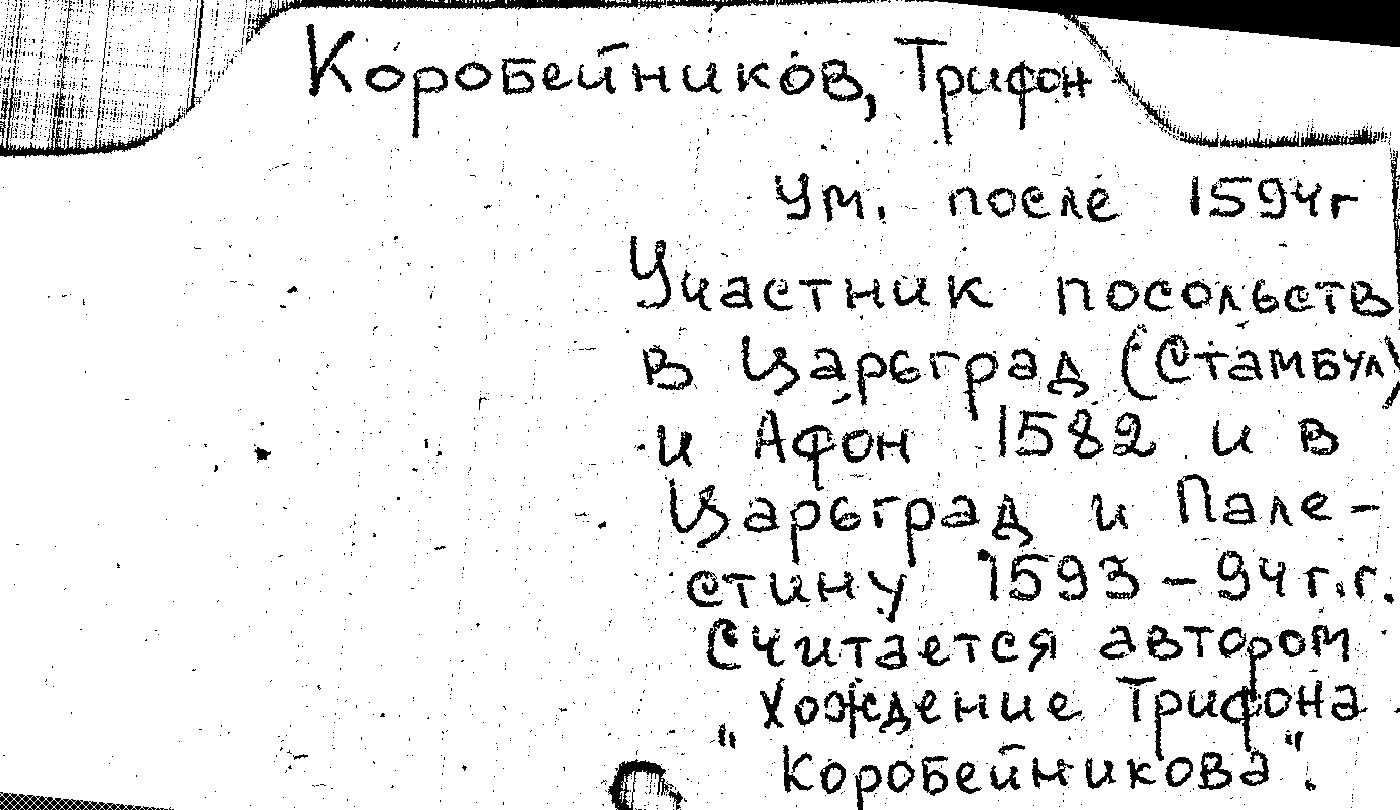 Коробейников, Трифон
Ум. после 1594г
Участник посольств
в Царьград (Стамбул)
и Афон 1582 и в
Царьград и Пале-
стину 1593-94 г.г.
Считается автором
"Хождение Трифона
Коробейникова".